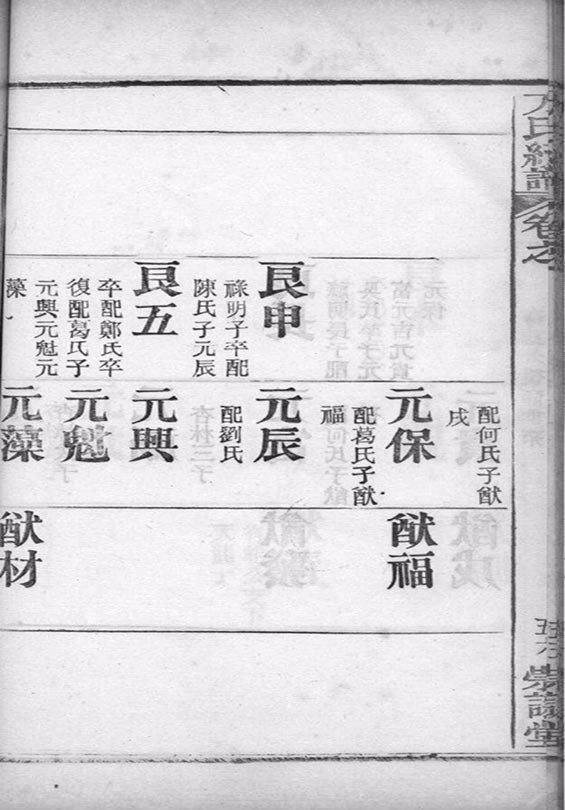 方氏
譜
卷之
良申
祿明子卒配
陳氏子元辰
良五
卒配鄭氏卒
復配葛氏子
元興元魁元
藻
配何氏子猷
戌
元保
配葛氏子猷
福
元辰
配劉氏
元興
元魁
元藻
猷福
猷材
堂